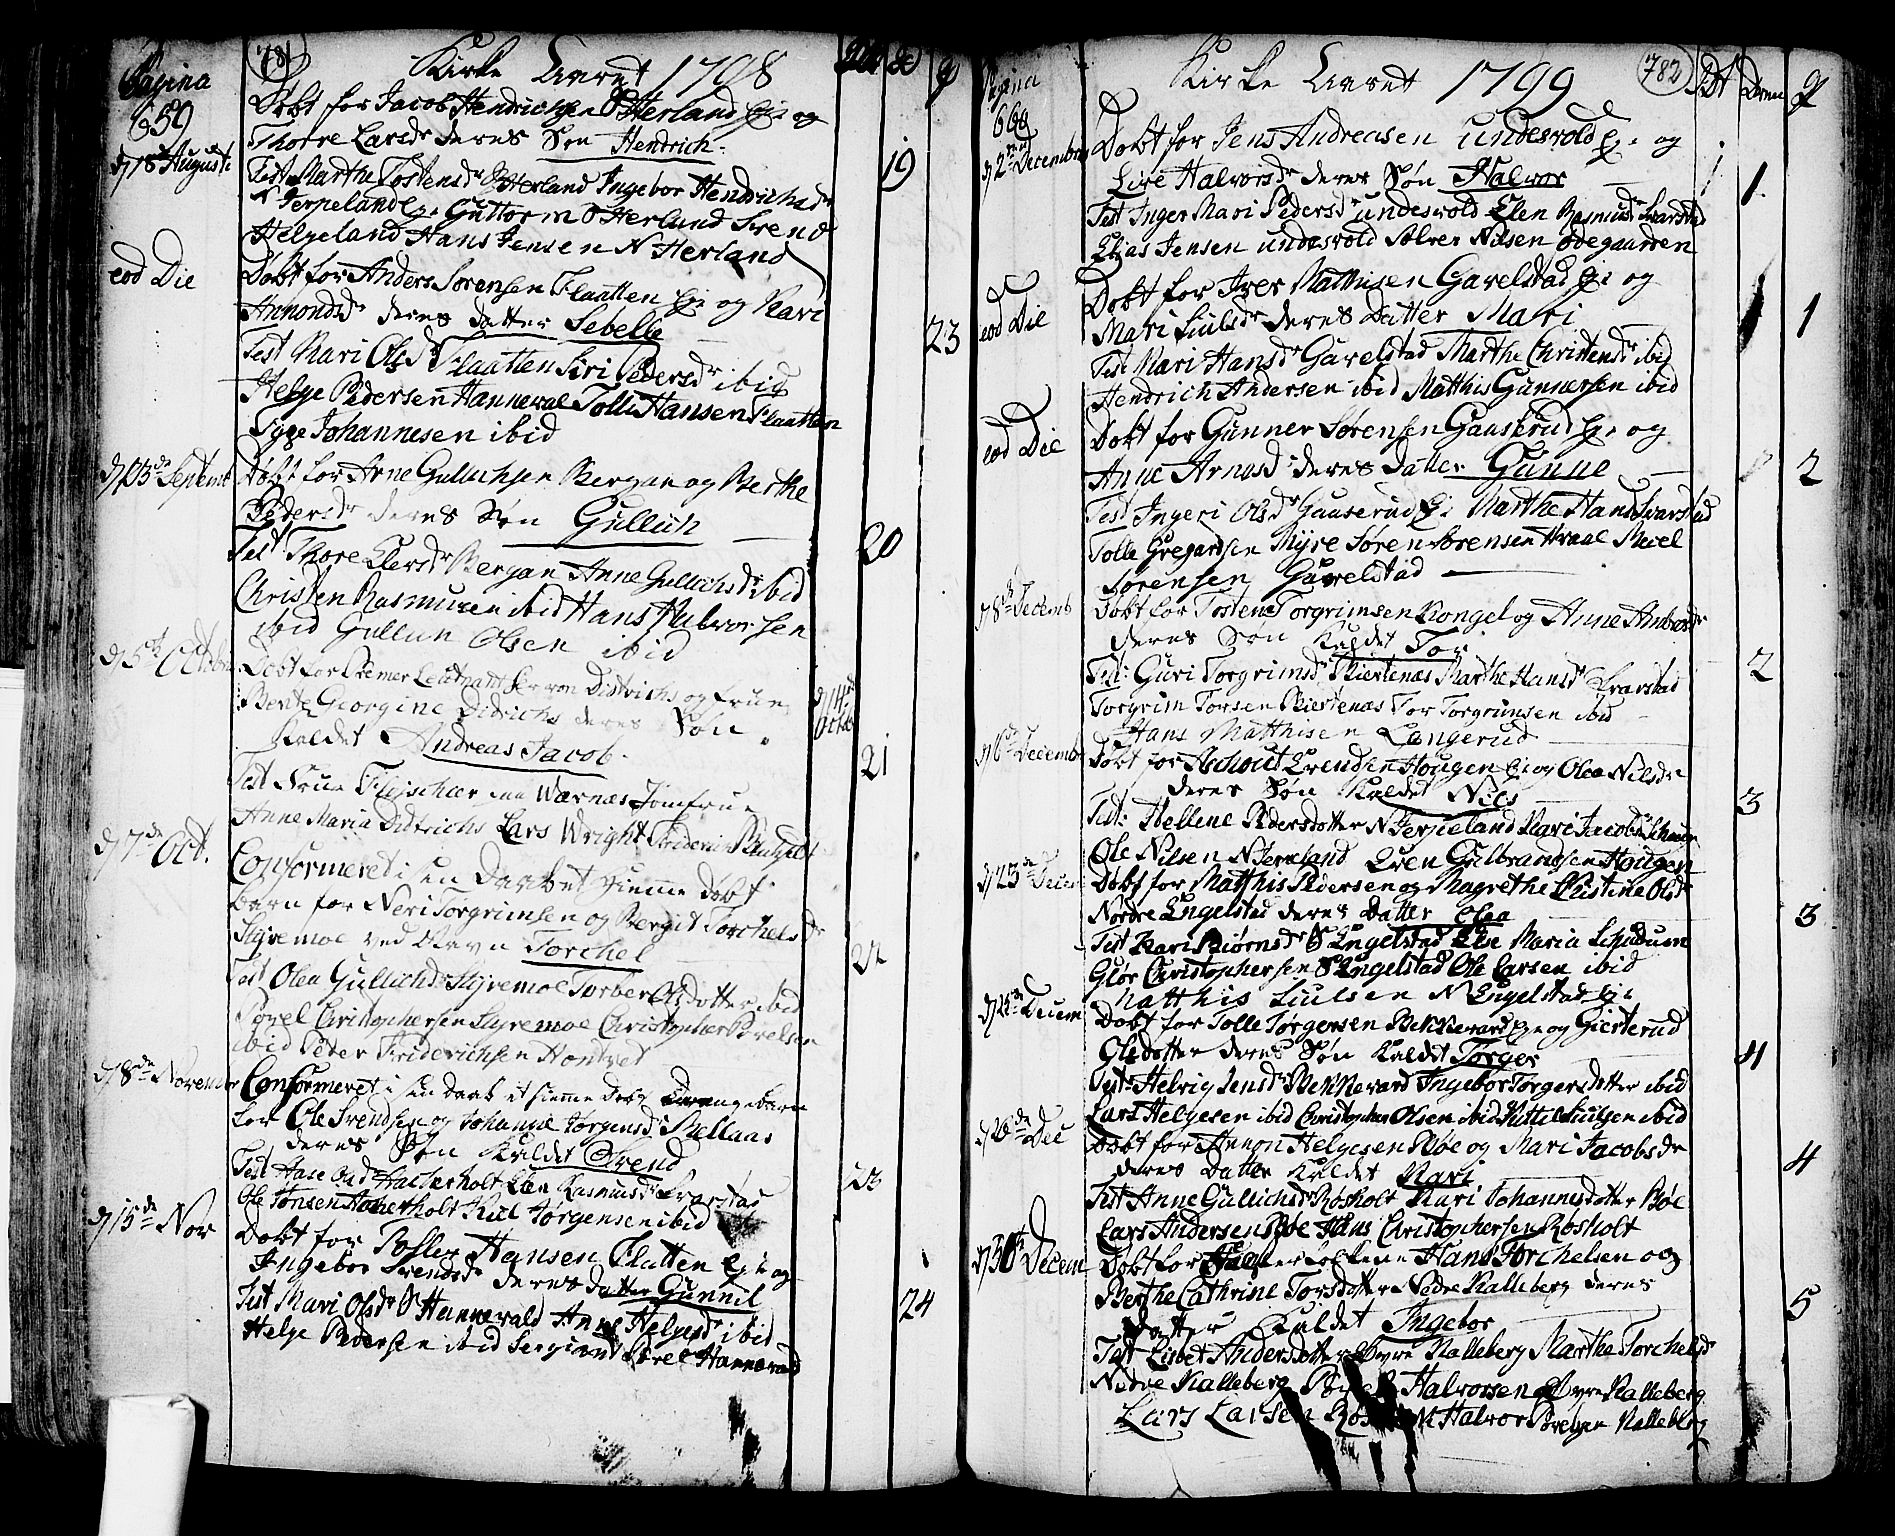 Pagina
659
781
Kirke Aaret 1798
Døbt for Jacob Hendrichsen S Herland Hr: og
Thorre Larsdr deres Søn Hendrich
19
d 18 Augusti
Test Marthe Tostensdr S Herland Ingebor Hendrichsdr
N Jerpeland Guttorm S Herland Svend
Helgeland Hans Jensen N Herland
eod Die
Døbt for Anders Sørensen Flaatten Hr og Kari
Amondsdr deres datter Sebelle
23
Test Kari Olsdr Flaatten Siri Pedersdr ibid
Helge Pedersen Hanneval Tolle Hansen Flaatten
Tyge Johannesen ibid
d 13de Septemb
Døbt for Arne Gullichsen Bergan og Berthe
Pedersdr deres Søn Gullich
20
Test Thore Larsdr Bergan Anne Gullichsdr ibid
Christen Rasmusen ibid Hans Halvorsen
ibid Gullun Olsen ibid
d 5th Octobr
Døbt for Premer Leutnant Her von Ditrichs og Frue
Bente Georgine Didrichs deres Søn
d 14de Octob
Kaldet Andreas Jacob
21
Test Frue Fleischer paa Wærnæs Jomfrue
Anne Maria Ditrichs Lars Wright Friderich
d 7de Oct.
Confirmeret i sen Daab et Hiemme døbt
barn for Neri Torgrimsen og Bergit Torchelsdr
Styremoe ved Navn Torchel
22
Test Olea Gullichsdr Styremoe Torber Olsdotter ibid
Povel Christophersen Styremoe Christopher Povelsen
ibid Peder Friderichsen Hontvet
d 8de Novembr
Confirmeret i sin daab et hiemme døbt drengebarn
for Ole Svendsen og Johanne Jørgensdr Bellaas
deres Søn Kaldet Svend
23
Test Aase Olsdr Haaberholt Elen Rasmusdr Svarstad
Ole Jonsen Haaberholt Kiel Jørgensen ibid
d 15de Nov
Døbt for Tosler Hansen Flatten Hr: og
Ingebor Svendsdr deres datter Gunnil
24
Test Mari Olsdr S Hannevald Anne Helgesdr ibid
Helge Pedersen ibid Sergiant Sørel Hannevald
Pagina
660
Kirke Aaret 1799
782
d 2den December
Døbt for Jens Andreasen undesvold Hr: og
Live Halvorsdr deres Søn Halvor
1
Test Inger Mari Pedersdr undesvold Elen Rasmusdr Svarstad
Elias Jensen undesvold Solver Nilsen Ødegaarden
eod Die
Døbt for Iver Mathisen Gavelstad Hr: og
Mari Juulsdr deres Datter Mari
1
Test Kari Hansdr Gavelstad Marthe Christensdr ibid
Hendrich Andersen ibid Matthis Gunnersen ibid
eod Die
Døbt for Gunner Sørensen Gauserud Hr: og
Anne Arnesdr deres datter Gunne
2
Test Ingeri Olsdr Gauserud Hr: Marthe Hansdr Svarstad
Tolle Gregardsen Myre Søren Sørensen Kraal
Sørensen Gavelstad
d 8de Decemb
Døbt for Tosten Torgrimsen Kongel og Anne Ambrosdr
deres Søn Kaldet Tor
2
Test: Guri Torgrimsdr Kiertenæs Marthe Hansdr Svarstad
Torgrim Torsen Kiertenæs Tor Torgrimsen ibid
Hans Matthisen Langerud
d 16de Decembr
Døbt for Aschout Evendsen Hougen Hr: og Olea Nilsdr
deres Søn Kaldet Nils
3
Test: Hellene Pedersdotter N Jerpeland Kari Jacobsdr
Ole Nilsen N Jerpeland Even Gulbrandsen Hougen
d 23de Decem
Døbt for Matthis Pedersen og Magrethe Kistine Olsdr
Nordre Engelstad deres Datter Olea
3
Test Kari Biørnsdr S Engelstad Else Maria
Glør Christophersen S Engelstad Ole Larsen ibid
Matthis Juulsen N Engelstad
d 26de Decem
Døbt for Tolle Torgersen Bekkevard Hr: og Gierterud
Olsdotter deres Søn Kaldet Torger
4
Test: Helvig Jensdr Bekkevard Ingebor Torgersdotter ibid
Lars Helgesen ibid Christopher Olsen ibid Kittel Juulsen ibid
d 26de Dec
Døbt for Helgesen Bøe og Mari Jacobsdr
deres datter Kaldet Kari
4
Test Anne Gullichsdr Røsholt Kari Johannesdotter Bøe
Lars Andersen Bøe Hans Christophersen Røsholt
d 30th Decem
Døbt for Hans Torchelsen og
Berthe Cathrine Torsdotter Nedre Kalleberg deres
datter Kaldet Ingebor
5
Test Lisbet Andersdotter Øvre Kalleberg Marthe Torchelsdr
Nedre Kalleberg Halvorsen Øvre Kalleberg
Lars Larsen Halvor Povelsen Kalleberg